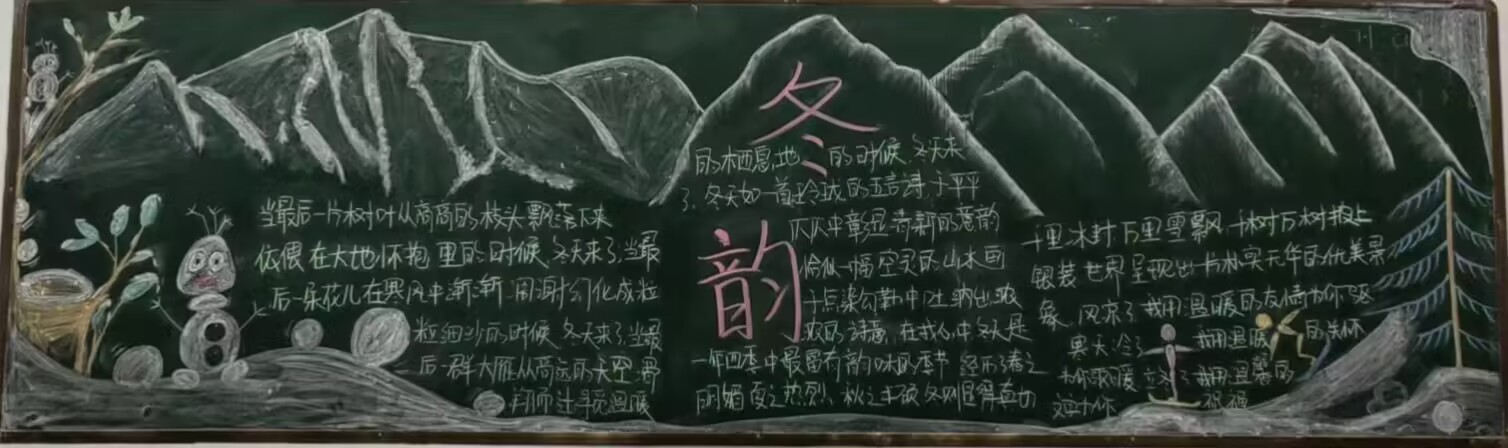 冬韵
当最后一片树叶从高高的枝头飘落下来
依偎在大地怀抱里的时候,冬天来了,当最
后一朵花儿在寒风中渐渐凋谢幻化成粒
粒细沙的时候,冬天来了,当最
后一群大雁从高远的天空
寻觅温暖
的栖息地的时候,冬天来
了,冬天如一首玲珑的五言诗,于平平
仄仄中彰显清新的意韵
恰似一幅空灵的山水画
于点染勾勒中吐纳出浓
浓的诗意,在我心中冬天是
一年四季中最富有韵味的季节 经历了春之
明媚夏之热烈、秋之丰硕
千里冰封万里雪飘,一树万树披上
银装世界呈现出一片朴实无华的优美景
象 风凉了我用温暖的友情为你驱
寒天冷了 我用温暖的关怀
为你取暖 立冬了我用温馨的
祝福